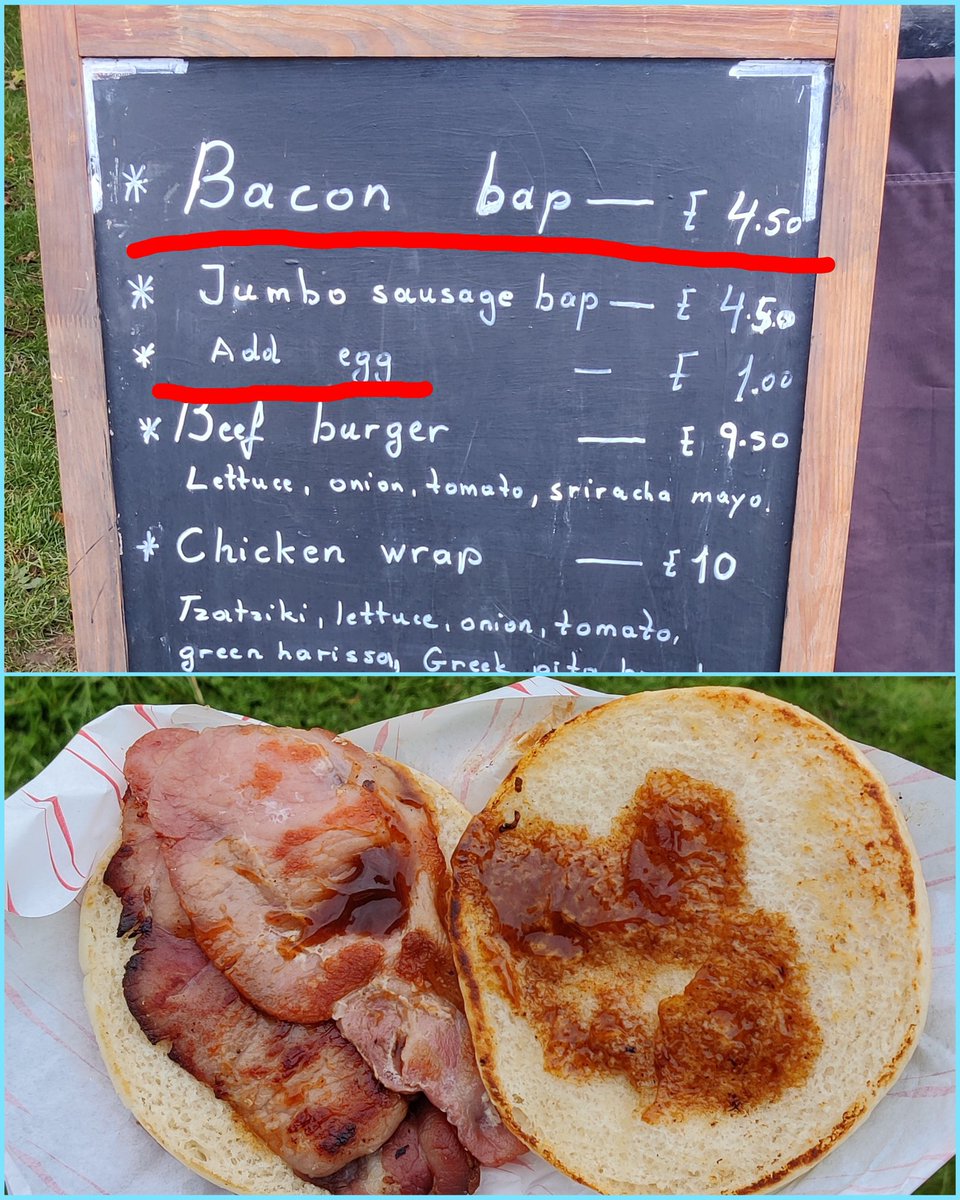 * Bacon bap — £ 4.50
* Jumbo sausage bap — £ 4.50
* Add egg — £ 1.00
* Beef burger — £ 9.50
Lettuce, onion, tomato, sriracha mayo.
* Chicken wrap — £10
Tzatziki, lettuce, onion, tomato,
green harissa, Greek pita